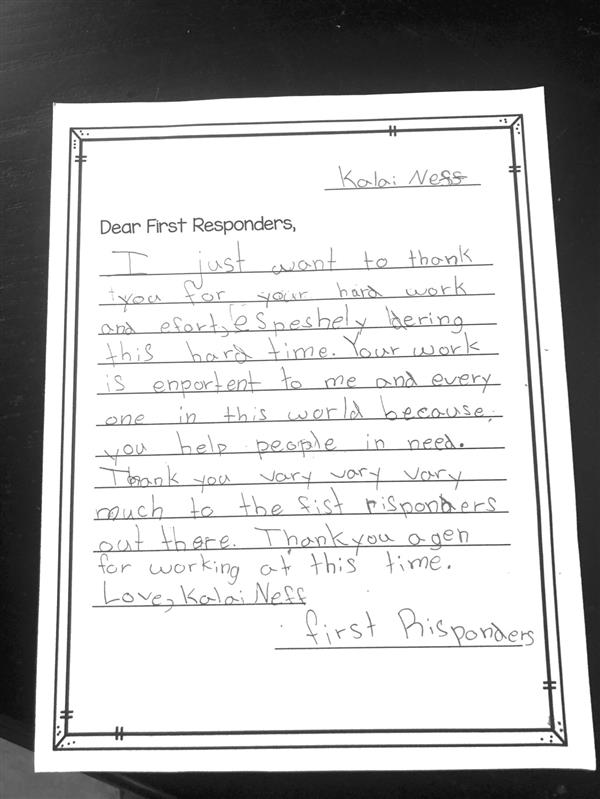 Kalai Neff
Dear First Responders,
I just want to thank
you for your hard work
and efort, espeshely dering
this hard time. Your work
is enportent to me and every
one in this world because,
you help people in need.
Thank you vary vary vary
much to the fist risponders
out there. Thank you agen
for working at this time.
Love, Kalai Neff
first Risponders